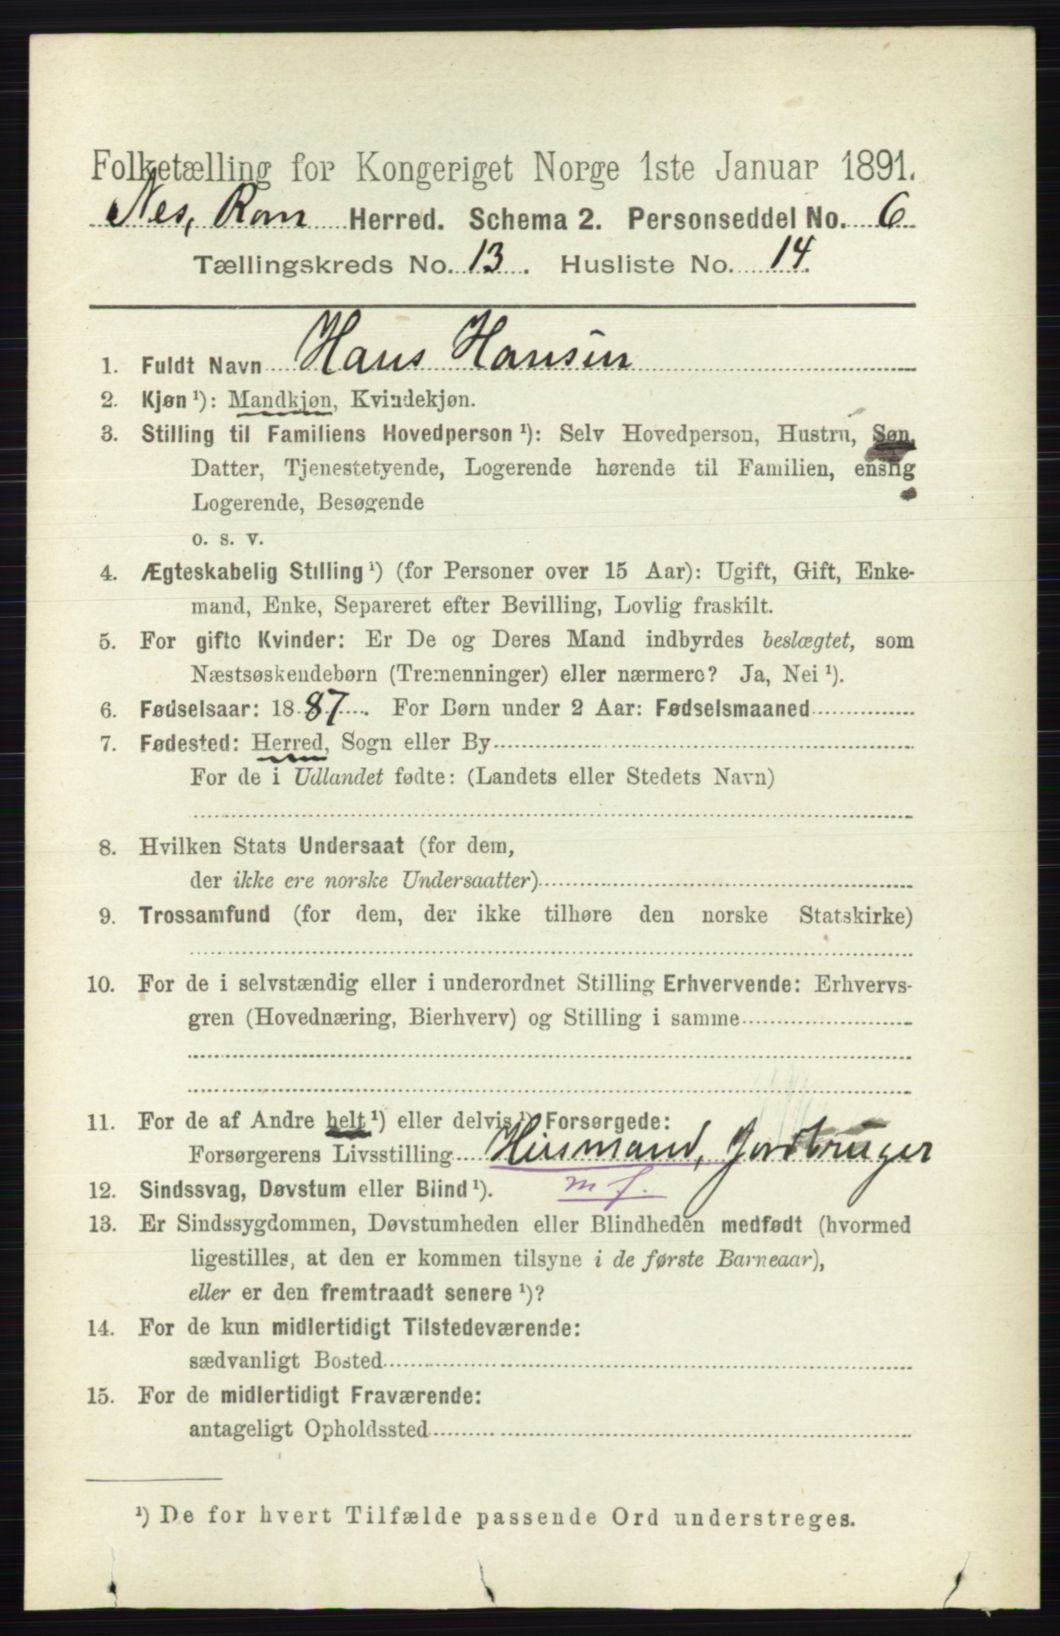 Folketælling for Kongeriget Norge 1ste Januar 1891.
Nes, Rom Herred. Schema 2. Personseddel No. 6
Tællingskreds No. 13. Husliste No. 14.
1. Fuldt Navn Hans Hansen
2. Kjøn ¹): Mandkjøn, Kvindekjøn.
3. Stilling til Familiens Hovedperson ¹): Selv Hovedperson, Hustru, Søn,
Datter, Tjenestetyende, Logerende hørende til Familien, enslig
Logerende, Besøgende
o. s. v.
4. Ægteskabelig Stilling ¹) (for Personer over 15 Aar): Ugift, Gift, Enke-
mand, Enke, Separeret efter Bevilling, Lovlig fraskilt.
5. For gifte Kvinder: Er De og Deres Mand indbyrdes beslægtet, som
Næstsøskendebørn (Tremenninger) eller nærmere? Ja, Nei ¹).
6. Fødselsaar: 1887. For Børn under 2 Aar: Fødselsmaaned
7. Fødested: Herred, Sogn eller By
For de i Udlandet fødte: (Landets eller Stedets Navn)
8. Hvilken Stats Undersaat (for dem,
der ikke ere norske Undersaatter)
9. Trossamfund (for dem, der ikke tilhøre den norske Statskirke)
10. For de i selvstændig eller i underordnet Stilling Erhvervende: Erhvervs-
gren (Hovednæring, Bierhverv) og Stilling i samme
11. For de af Andre helt ¹) eller delvis ¹) Forsørgede:
Forsørgerens Livsstilling Husmand, Jordbruger
12. Sindssvag, Døvstum eller Blind ¹). m f.
13. Er Sindssygdommen, Døvstumheden eller Blindheden medfødt (hvormed
ligestilles, at den er kommen tilsyne i de første Barneaar),
eller er den fremtraadt senere ¹)?
14. For de kun midlertidigt Tilstedeværende:
sædvanligt Bosted
15. For de midlertidigt Fraværende:
antageligt Opholdssted
¹) De for hvert Tilfælde passende Ord understreges.